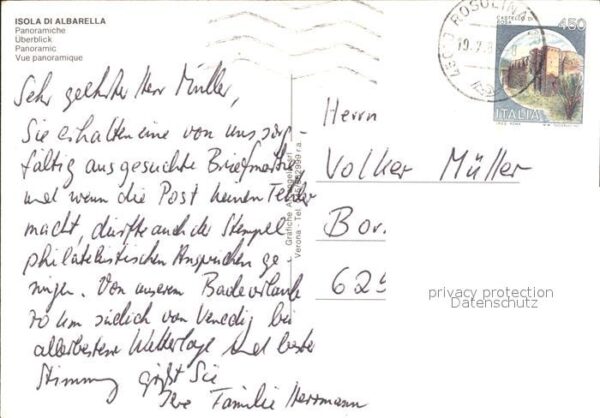 ISOLA DI ALBARELLA
Panoramiche
Überblick
Panoramic
Vue panoramique
Sehr geehrter Herr Müller,
Sie erhalten eine von uns sorg-
fältig ausgesuchte Briefmarke
und wenn die Post keinen Fehler
macht, dürfte auch der Stempel
philatelistischen Ansprüchen ge-
nügen. Von unserem Badeurlaub
70 km südlich von Venedig bei
allerbester Wetterlage und bester
Stimmung grüßt Sie
Ihre Familie Herrmann
Grafiche
Verona - Tel.
ROSOLINA
CASTELLO DI
450
ITALIA
Herrn
Volker Müller
Bor.
629
privacy protection
Datenschutz